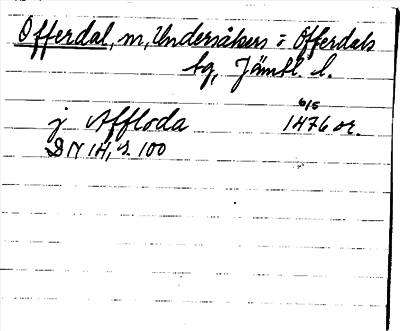 Offerdal, m, Undersåkers o Offerdals
tg, Jämtl. l.
j Affloda 6/5 1476 or.
DN 14, s. 100